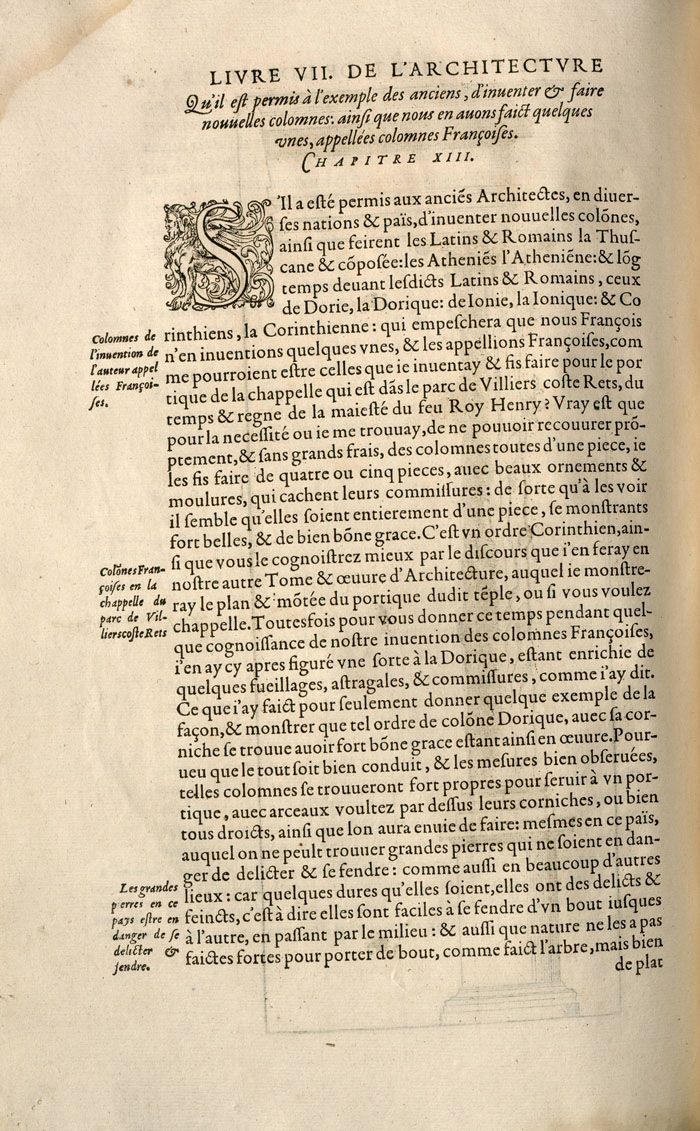 LIVRE VII. DE L'ARCHITECTVRE
Qu'il est permis à l'exemple des anciens, d'inuenter & faire
nouuelles colomnes: ainsi que nous en auons faict quelques
vnes, appellées colomnes Françoises.
CHAPITRE XIII.
S'Il a esté permis aux anciẽs Architectes, en diuer-
ses nations & païs, d'inuenter nouuelles colõnes,
ainsi que feirent les Latins & Romains la Thus-
cane & cõposée: les Atheniẽs l'Atheniẽne: & lõg
temps deuant lesdicts Latins & Romains, ceux
de Dorie, la Dorique: de Ionie, la Ionique: & Co
rinthiens, la Corinthienne: qui empeschera que nous François
n'en inuentions quelques vnes, & les appellions Françoises, com
me pourroient estre celles que ie inuentay & fis faire pour le por
tique de la chappelle qui est dãs le parc de Villiers coste Rets, du
temps & regne de la maiesté du feu Roy Henry? Vray est que
pour la necessité ou ie me trouuay, de ne pouuoir recouurer prõ-
ptement, & sans grands frais, des colomnes toutes d'une piece, ie
les fis faire de quatre ou cinq pieces, auec beaux ornements &
moulures, qui cachent leurs commissures: de sorte qu'à les voir
il semble qu'elles soient entierement d'une piece, se monstrants
fort belles, & de bien bõne grace. C'est vn ordre Corinthien, ain-
si que vous le cognoistrez mieux par le discours que i'en feray en
nostre autre Tome & œuure d'Architecture, auquel ie monstre-
ray le plan & mõtée du portique dudit tẽple, ou si vous voulez
chappelle. Toutesfois pour vous donner ce temps pendant quel-
que cognoissance de nostre inuention des colomnes Françoises,
i'en ay cy apres figuré vne sorte à la Dorique, estant enrichie de
quelques fueillages, astragales, & commissures, comme i'ay dit.
Ce que i'ay faict pour seulement donner quelque exemple de la
façon, & monstrer que tel ordre de colõne Dorique, auec sa cor-
niche se trouue auoir fort bõne grace estant ainsi en œuure. Pour-
ueu que le tout soit bien conduit, & les mesures bien obseruées,
telles colomnes se trouueront fort propres pour seruir à vn por-
tique, auec arceaux voultez par dessus leurs corniches, ou bien
tous droicts, ainsi que lon aura enuie de faire: mesmes en ce païs,
auquel on ne peult trouuer grandes pierres qui ne soient en dan-
ger de delicter & se fendre: comme aussi en beaucoup d'autres
lieux: car quelques dures qu'elles soient, elles ont des delicts &
feincts, c'est à dire elles sont faciles à se fendre d'vn bout iusques
à l'autre, en passant par le milieu: & aussi que nature ne les a pas
faictes fortes pour porter de bout, comme faict l'arbre, mais bien
de plat
Colomnes de
l'inuention de
l'auteur appel
lées Françoi-
ses.
Colõnes Fran-
çoises en la
chappelle du
parc de Vil-
liers coste Rets
Les grandes
pierres en ce
pays estre en
danger de se
delicter &
fendre.